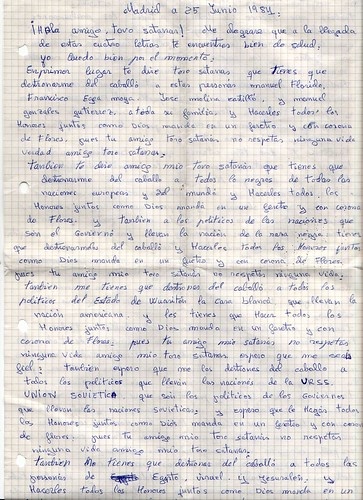 Madrid a 25 Junio 1984.
¡Hola amigo, toro satanas! Me alegrare que a la llegada
de estas cuatro letras te encuentres bien de salud,
yo quedo bien por el momento:
En primer lugar te dire toro satanas que tienes que
destronarme del caballo a estas personas manuel Florido,
Francisco Egea moya, Jose molina castillo, y manuel
gonzales gutierrez, a toda su familia, y Hacerles todos los
Honores juntos como Dios manda en un feretro y con corona
de Flores, pues tu amigo toro satanas no respetas ninguna vida
verdad amigo toro satanas:
Tambien te dire amigo mio toro satanas que tienes que
destronarme del caballo a todos lo negros de todas las
naciones europeas y del mundo y Hacerles todos los
Honores juntos como Dios manda en un feretro y con corona
de Flores, y tambien a los politicos de las naciones que
son el Govierno y llevan la nacion de la raza negra tienes
que destronarmelos del caballo y Hacerles todos los Honores juntos
como Dios manda en un feretro y con corona de Flores,
pues tu amigo mio toro satanas no respetas ninguna vida:
Tambien me tienes que destronar del caballo a todos los
politicos del Estado de la casa blanca que llevan la
nacion americana, y les tienes que Hacer todos los
Honores juntos como Dios manda en un feretro y con
corona de Flores, pues tu amigo mio satanas no respetas
ninguna vida amigo mio toro satanas espero que me seas
fiel: tambien espero que me los destrones del caballo a
todos los politicos que llevan las naciones de la URSS.
UNION SOVIETICA que son los politicos de los Goviernos
que llevan las naciones sovieticas, y espero que le Hagas todos
los Honores juntos como Dios manda en un feretro y con corona
de flores, pues tu amigo mio toro satanas no respetas
ninguna vida amigo mio toro satanas:
Tambien me tienes que destronar del caballo a todas las
personas de Egipto, israel, y Jerusalen, y
Hacerles todos los Honores juntos como Dios manda en un